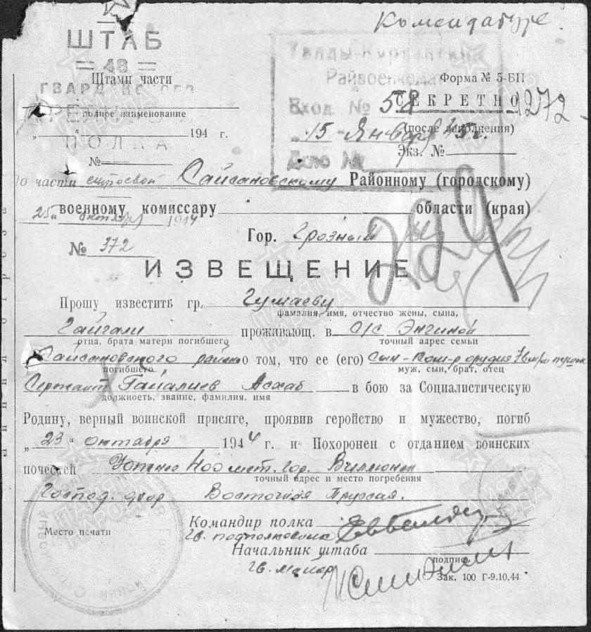 Комендатуре.
ШТАБ
= 48 =
Штамп части
ГВАРД
полное наименование
194 г.
ПОЛКА
№
Райвоенкомат
Вход. №
15 Января 45г.
Дело №
Форма № 5-БП
СЕКРЕТНО
(после заполнения)
Экз. №
1272
По части Сайсановскому Районному (городскому)
25 октября 1944 военному комиссару области (края)
№ 372 Гор. Грозный
229
ИЗВЕЩЕНИЕ
Прошу известить гр. Гумаеву
фамилия, имя, отчество жены, сына,
Гайгали проживающ. в О/с Энгиной
отца, брата матери погибшего точный адрес семьи
Сайсановского района о том, что ее (его) сын - Ком-р орудия
погибшего муж, сын, брат, отец
Сержант Гайалиев Асхаб в бою за Социалистическую
должность, звание, фамилия, имя
Родину, верный воинской присяге, проявив геройство и мужество, погиб
„23" октября 1944 г. и Похоронен с отданием воинских
почестей Южнее 400 мет. гор. Виллюнен
точный адрес и место погребения
Господ. двор Восточная Пруссия.
Командир полка
Гв. подполковник
Место печати
Начальник штаба
подпись
Гв. майор
Зак. 100 Г-9.10.44